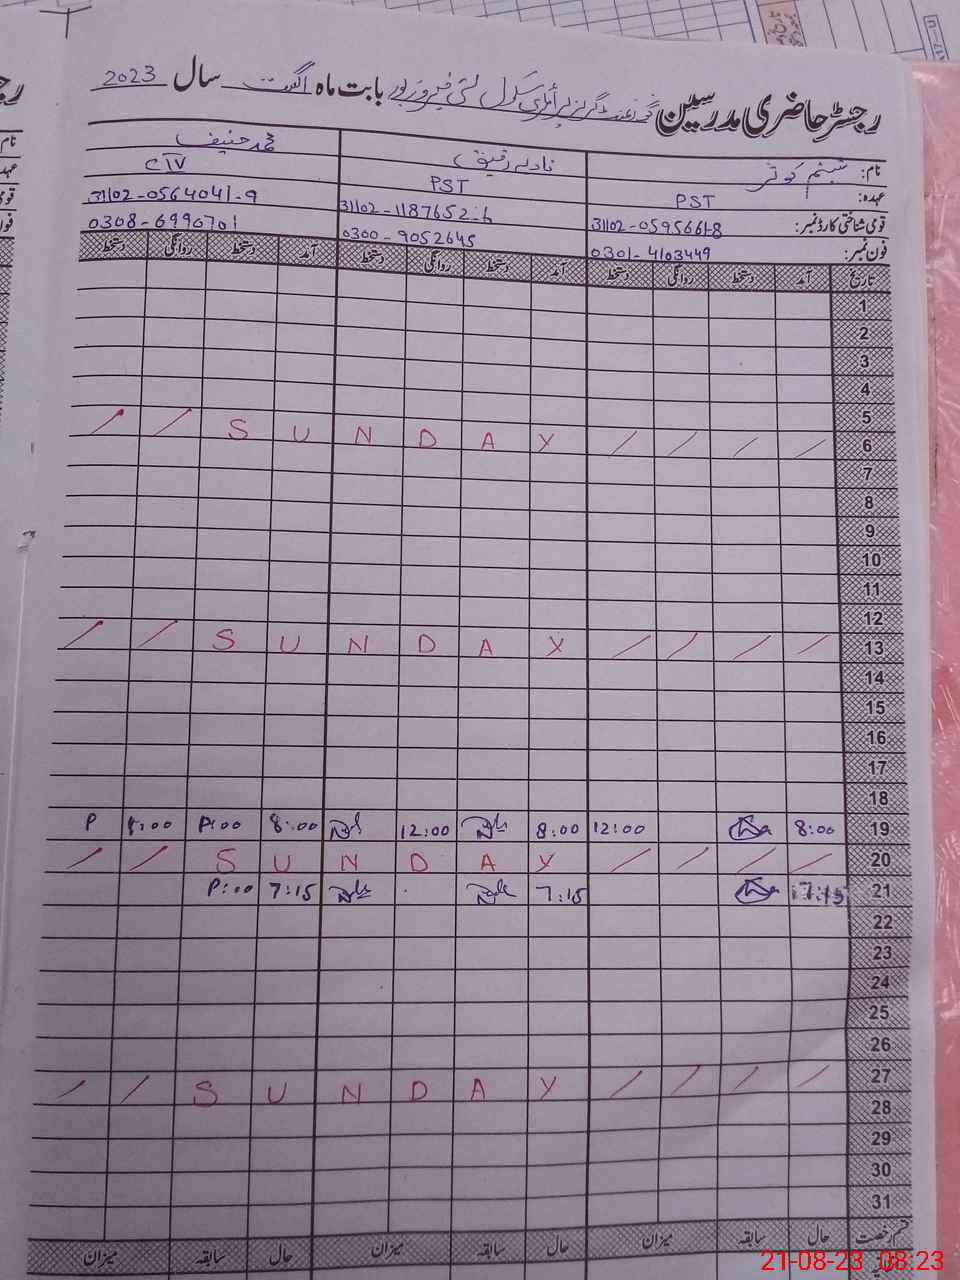 رجسٹر حاضری مدرسین گورنمنٹ گرلز پرائمری سکول بستی فیروز پور بابت ماہ اگست سال 2023
نام: شبنم کوثر نادیہ رفیق محمد حنیف
عہدہ: PST PST CTV
قومی شناختی کارڈ نمبر: 31102-0595661-8 31102-1187652-6 31102-0564041-9
فون نمبر: 0301-4103449 0300-9052645 0308-6990701
تاریخ آمد دستخط روانگی دستخط آمد دستخط روانگی دستخط آمد دستخط روانگی دستخط
1
2
3
4
5
6 S U N D A Y
7
8
9
10
11
12
13 S U N D A Y
14
15
16
17
18
19 8:00 12:00 8:00 12:00 8:00 P:00 P
20 S U N D A Y
21 7:15 7:15 7:15 P:00
22
23
24
25
26
27 S U N D A Y
28
29
30
31
قسم رخصت حال سابقہ میزان حال سابقہ میزان حال سابقہ میزان
21-08-23 08:23